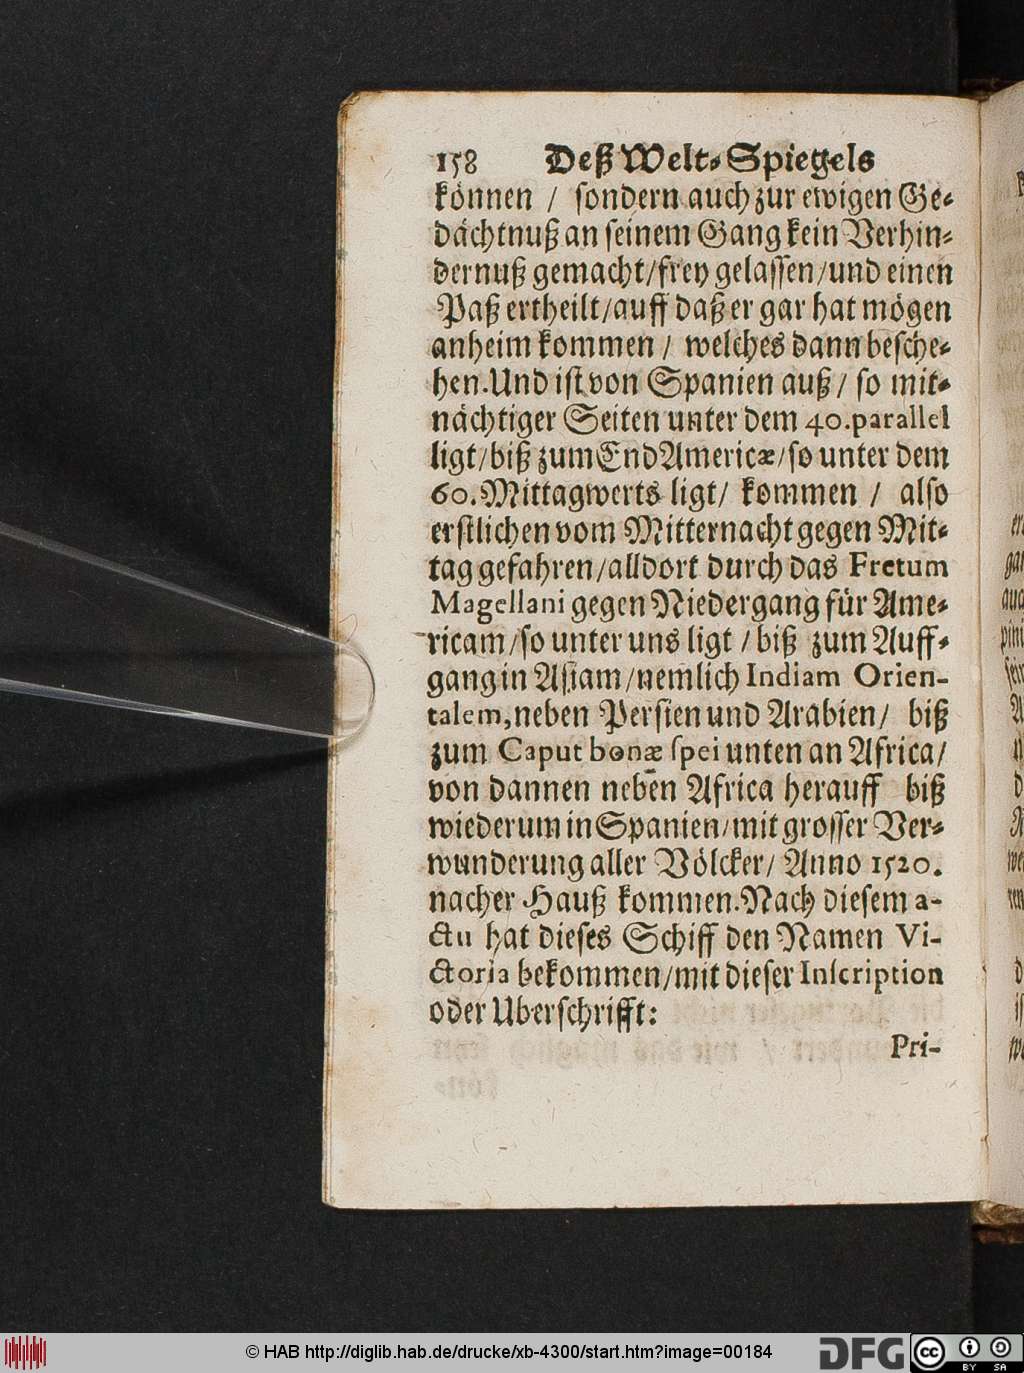 158 Deß Welt-Spiegels
können / sondern auch zur ewigen Ge-
dächtnuß an seinem Gang kein Verhin-
dernuß gemacht/frey gelassen/und einen
Paß ertheilt/auff daß er gar hat mögen
anheim kommen / welches dann besche-
hen.Und ist von Spanien auß / so mit-
nächtiger Seiten unter dem 40.parallel
ligt/biß zum End Americæ/so unter dem
60.Mittagwerts ligt/ kommen / also
erstlichen vom Mitternacht gegen Mit-
tag gefahren/alldort durch das Fretum
Magellani gegen Niedergang für Ame-
ricam/so unter uns ligt / biß zum Auff-
gang in Asiam/nemlich Indiam Orien-
talem,neben Persien und Arabien/ biß
zum Caput bonæ spei unten an Africa/
von dannen nebēn Africa herauff biß
wiederum in Spanien/mit grosser Ver-
wunderung aller Völcker/ Anno 1520.
nacher Hauß kommen.Nach diesem a-
ctu hat dieses Schiff den Namen Vi-
ctoria bekommen/mit dieser Inscription
oder Uberschrifft:
Pri-
© HAB http://diglib.hab.de/drucke/xb-4300/start.htm?image=00184
DFG
cc BY SA